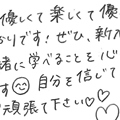 優しくて楽しくて優
かりです!ぜひ、新入
緒に学べることを心
す😊自分を信じて
頑張て下さい♡♡